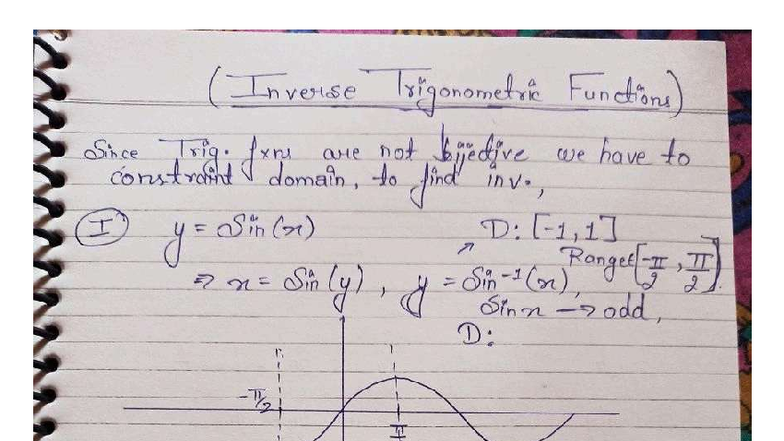 (Inverse Trigonometric Functions)
Since Trig. fxns are not bijective we have to
constraint domain, to find inv.,
I y = Sin(x) D: [-1, 1]
Range[-π/2, π/2].
⇒ x = Sin(y), y = Sin⁻¹(x),
Sinx → odd,
D:
-π/2
π